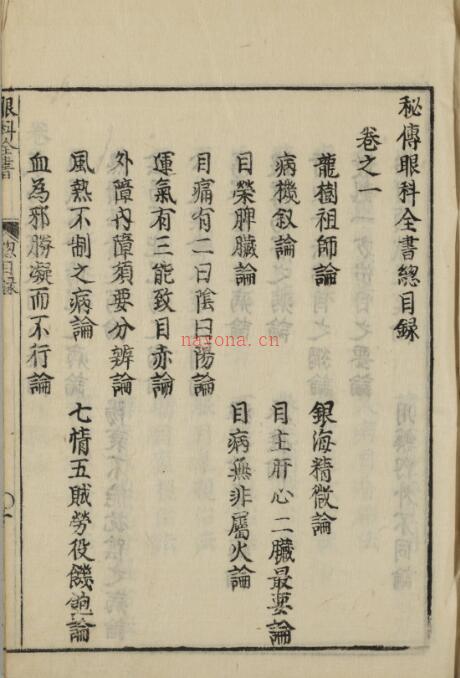 秘傳眼科全書總目錄
卷之一
龍樹祖師論 銀海精微論
病機叙論 目主肝心二臟最要論
目榮脾臟論 目病無非屬火論
目痛有二曰陰曰陽論
運氣有三能致目赤論
外障內障須要分辨論
風熱不制之病論 七情五賊勞役饑飽論
血為邪勝凝而不行論
眼科全書 總目錄
nayona.cn